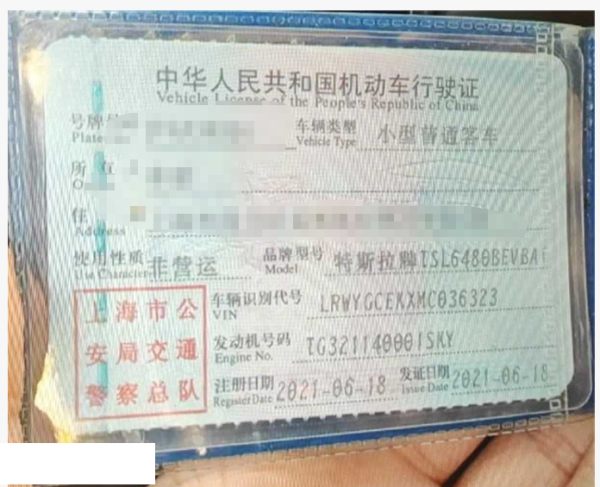 中华人民共和国机动车行驶证
Vehicle License of the People's Republic of China
号牌号
Plate
车辆类型 小型普通客车
Vehicle Type
所
住
Address
使用性质 非营运 品牌型号 特斯拉牌TSL6480BEVBA
Use Character Model
车辆识别代号 LRWYGCEKXMC036323
VIN
发动机号码 TG3211400015KY
Engine No.
注册日期 2021-06-18 发证日期 2021-06-18
Register Date Issue Date
上海市公
安局交通
警察总队